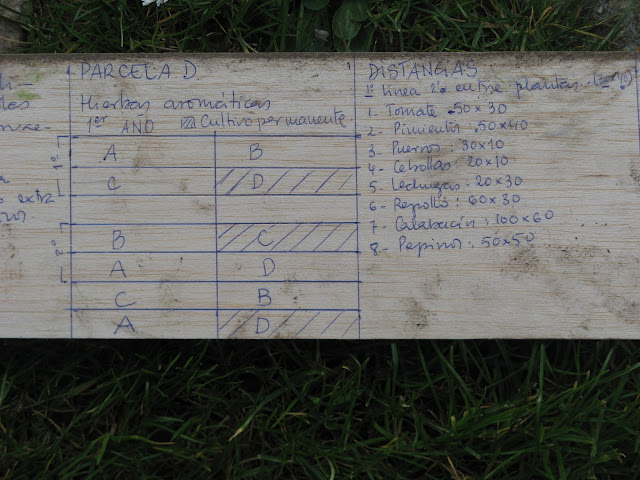 PARCELA D.
Hierbas aromáticas
1er AÑO Cultivo permanente.
1º
A B
C D
2º
B C
A D
C B
A D
DISTANCIAS
1º linea 2º entre plantas.
1- Tomate . 50x30
2- Pimientos . 50x40
3- Puerros : 30x10
4- Cebollas : 20x10
5- Lechugas : 20x30
6- Repollo : 60x30
7- Calabacín : 100x60
8- Pepinos : 50x50